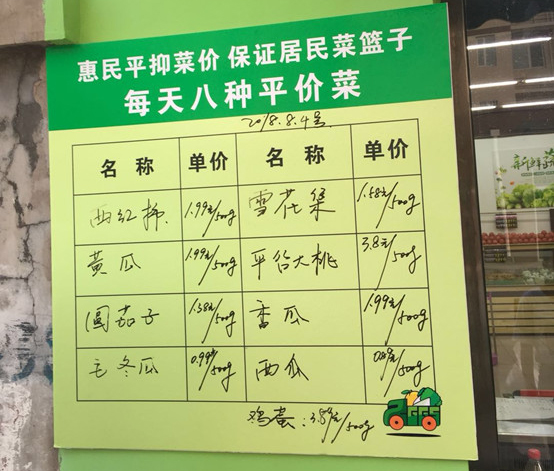 惠民平抑菜价 保证居民菜篮子
每天八种平价菜
2018.8.4号
名称 单价 名称 单价
西红柿 1.99元/500g 雪花梨 1.58元/500g
黄瓜 1.99元/500g 平谷大桃 3.8元/500g
圆茄子 1.38元/500g 香瓜 1.99元/500g
毛冬瓜 0.99元/500g 西瓜 /500g
鸡蛋: /500g
新鲜